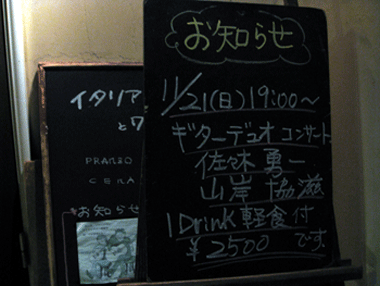 お知らせ
11/21(日)19:00〜
ギターデュオ コンサート
佐々木 勇一
山岸 協滋
1Drink 軽食付
¥2500 です
イタリア
と
PRANZO
CENA
お知らせ